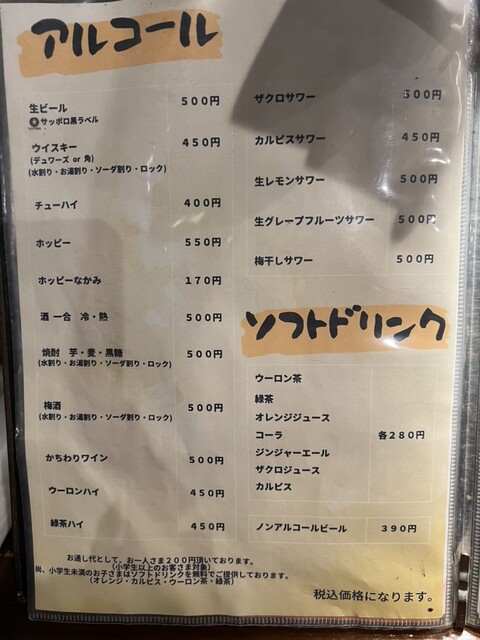 アルコール
生ビール ５００円
サッポロ黒ラベル
ウイスキー ４５０円
(デュワーズ or 角)
(水割り・お湯割り・ソーダ割り・ロック)
チューハイ ４００円
ホッピー ５５０円
ホッピーなかみ １７０円
酒 一合 冷・熱 ５００円
焼酎 芋・麦・黒糖 ５００円
(水割り・お湯割り・ソーダ割り・ロック)
梅酒 ５００円
(水割り・お湯割り・ソーダ割り・ロック)
かちわりワイン ５００円
ウーロンハイ ４５０円
緑茶ハイ ４５０円
ザクロサワー ５００円
カルピスサワー ４５０円
生レモンサワー ５００円
生グレープフルーツサワー ５００円
梅干しサワー ５００円
ソフトドリンク
ウーロン茶
緑茶
オレンジジュース
コーラ 各２８０円
ジンジャーエール
ザクロジュース
カルピス
ノンアルコールビール ３９０円
お通し代として、お一人さま２００円頂いております。
(小学生以上のお客さま対象)
尚、小学生未満のお子さまはソフトドリンクを無料でご提供しております。
(オレンジ・カルピス・ウーロン茶・緑茶)
税込価格になります。